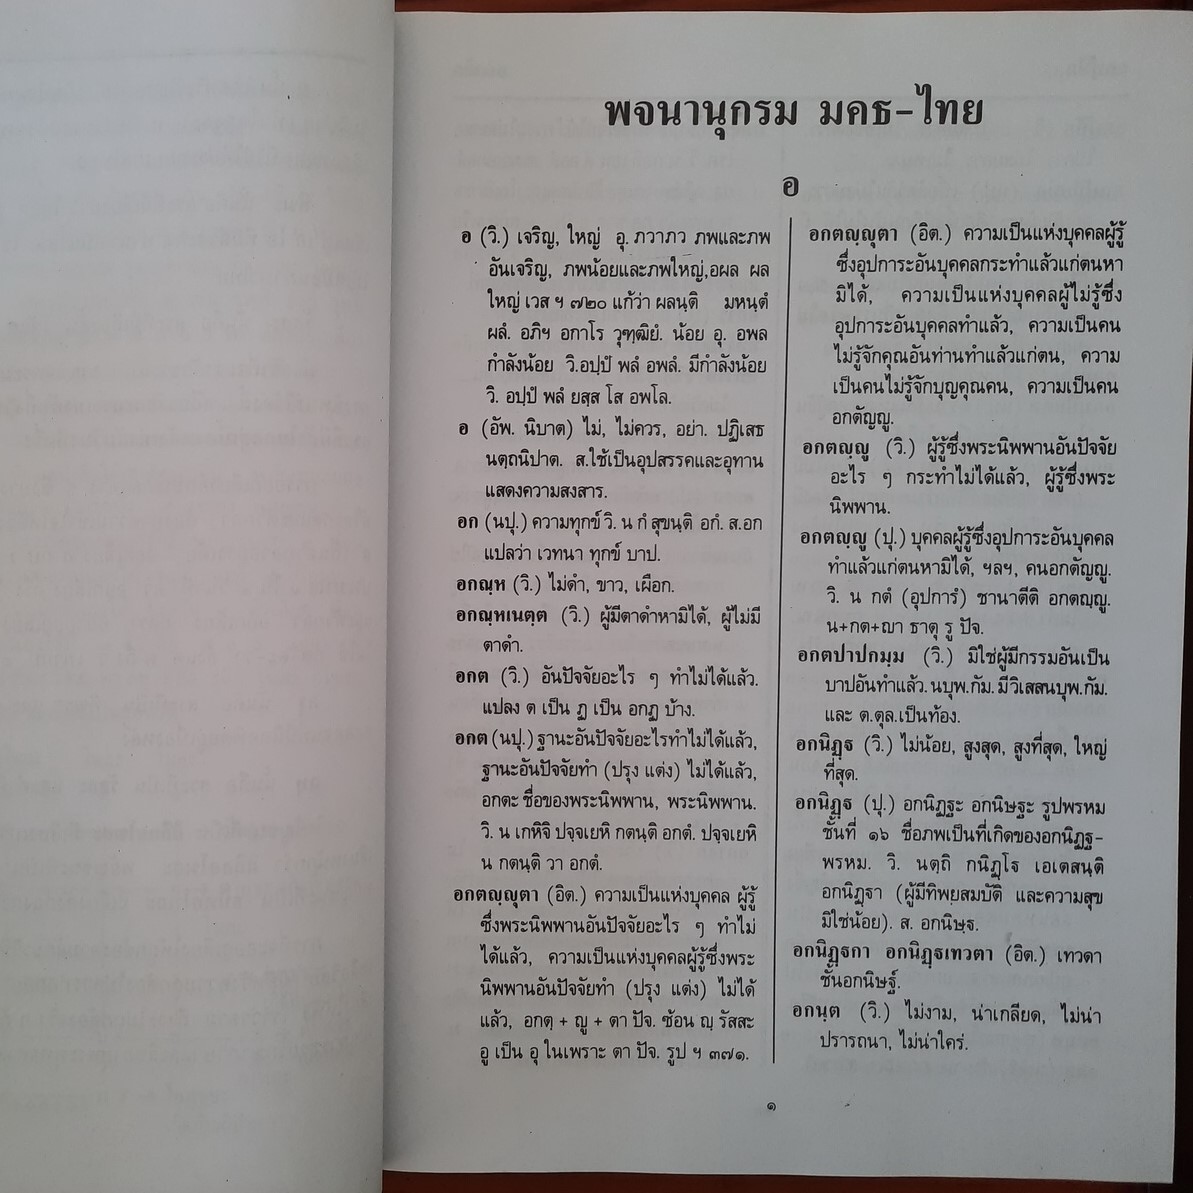 พจนานุกรม มคธ-ไทย
อ
อ (วิ.) เจริญ, ใหญ่ อุ. ภวาภว ภพและภพ
อันเจริญ, ภพน้อยและภพใหญ่,อผล ผล
ใหญ่ เวส ฯ ๗๒๐ แก้ว่า ผลนฺติ มหนฺตํ
ผลํ. อภิฯ อกาโร วุฑฺฒิยํ. น้อย อุ. อพล
กำลังน้อย วิ.อปฺปํ พลํ อพลํ. มีกำลังน้อย
วิ. อปฺปํ พลํ ยสฺส โส อพโล.
อ (อัพ. นิบาต) ไม่, ไม่ควร, อย่า. ปฏิเสธ
นตฺถนิปาต. ส.ใช้เป็นอุปสรรคและอุทาน
แสดงความสงสาร.
อก (นปุ.) ความทุกข์ วิ. น กํ สุขนฺติ อกํ. ส.อก
แปลว่า เวทนา ทุกข์ บาป.
อกณฺห (วิ.) ไม่ดำ, ขาว, เผือก.
อกณฺหเนตฺต (วิ.) ผู้มีตาดำหามิได้, ผู้ไม่มี
ตาดำ.
อกต (วิ.) อันปัจจัยอะไร ๆ ทำไม่ได้แล้ว.
แปลง ต เป็น ฏ เป็น อกฏ บ้าง.
อกต (นปุ.) ฐานะอันปัจจัยอะไรทำไม่ได้แล้ว,
ฐานะอันปัจจัยทำ (ปรุง แต่ง) ไม่ได้แล้ว,
อกตะ ชื่อของพระนิพพาน, พระนิพพาน.
วิ. น เกหิจิ ปจฺจเยหิ กตนฺติ อกตํ. ปจฺจเยหิ
น กตนฺติ วา อกตํ.
อกตญฺญุตา (อิต.) ความเป็นแห่งบุคคล ผู้รู้
ซึ่งพระนิพพานอันปัจจัยอะไร ๆ ทำไม่
ได้แล้ว, ความเป็นแห่งบุคคลผู้รู้ซึ่งพระ
นิพพานอันปัจจัยทำ (ปรุง แต่ง) ไม่ได้
แล้ว, อกตฺ + ญู + ตา ปัจ. ซ้อน ญฺ รัสสะ
อู เป็น อุ ในเพราะ ตา ปัจ. รูป ฯ ๓๗๑.
อกตญฺญุตา (อิต.) ความเป็นแห่งบุคคลผู้รู้
ซึ่งอุปการะอันบุคคลกระทำแล้วแก่ตนหา
มิได้, ความเป็นแห่งบุคคลผู้ไม่รู้ซึ่ง
อุปการะอันบุคคลทำแล้ว, ความเป็นคน
ไม่รู้จักคุณอันท่านทำแล้วแก่ตน, ความ
เป็นคนไม่รู้จักบุญคุณคน, ความเป็นคน
อกตัญญู.
อกตญฺญู (วิ.) ผู้รู้ซึ่งพระนิพพานอันปัจจัย
อะไร ๆ กระทำไม่ได้แล้ว, ผู้รู้ซึ่งพระ
นิพพาน.
อกตญฺญู (ปุ.) บุคคลผู้รู้ซึ่งอุปการะอันบุคคล
ทำแล้วแก่ตนหามิได้, ฯลฯ, คนอกตัญญู.
วิ. น กตํ (อุปการํ) ชานาตีติ อกตญฺญู.
น+กต+ญา ธาตุ รู ปัจ.
อกตปาปกมฺม (วิ.) มิใช่ผู้มีกรรมอันเป็น
บาปอันทำแล้ว. นบุพ.กัม. มีวิเสสนบุพ.กัม.
และ ต.ตุล.เป็นท้อง.
อกนิฏฺฐ (วิ.) ไม่น้อย, สูงสุด, สูงที่สุด, ใหญ่
ที่สุด.
อกนิฏฺฐ (ปุ.) อกนิฏฐะ อกนิษฐะ รูปพรหม
ชั้นที่ ๑๖ ชื่อภพเป็นที่เกิดของอกนิฏฐ-
พรหม. วิ. นตฺถิ กนิฏฺโฐ เอเตสนฺติ
อกนิฏฺฐา (ผู้มีทิพยสมบัติ และความสุข
มิใช่น้อย). ส. อกนิษฺฐ.
อกนิฏฺฐกา อกนิฏฺฐเทวตา (อิต.) เทวดา
ชั้นอกนิษฐ์.
อกนฺต (วิ.) ไม่งาม, น่าเกลียด, ไม่น่า
ปรารถนา, ไม่น่าใคร่.
๑